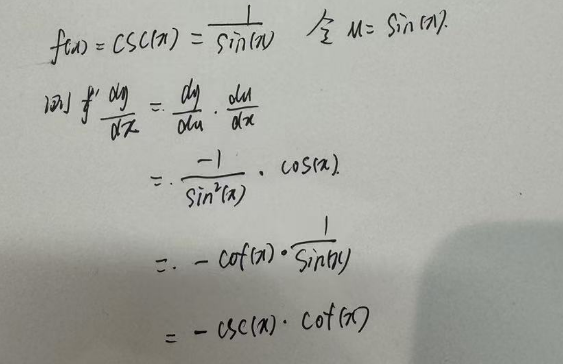 f(x) = csc(x) = 1/sin(x) 令 u = sin(x).
则 f' dy/dx = dy/du · du/dx
= -1/sin²(x) · cos(x).
= - cot(x) · 1/sin(x)
= - csc(x) · cot(x)